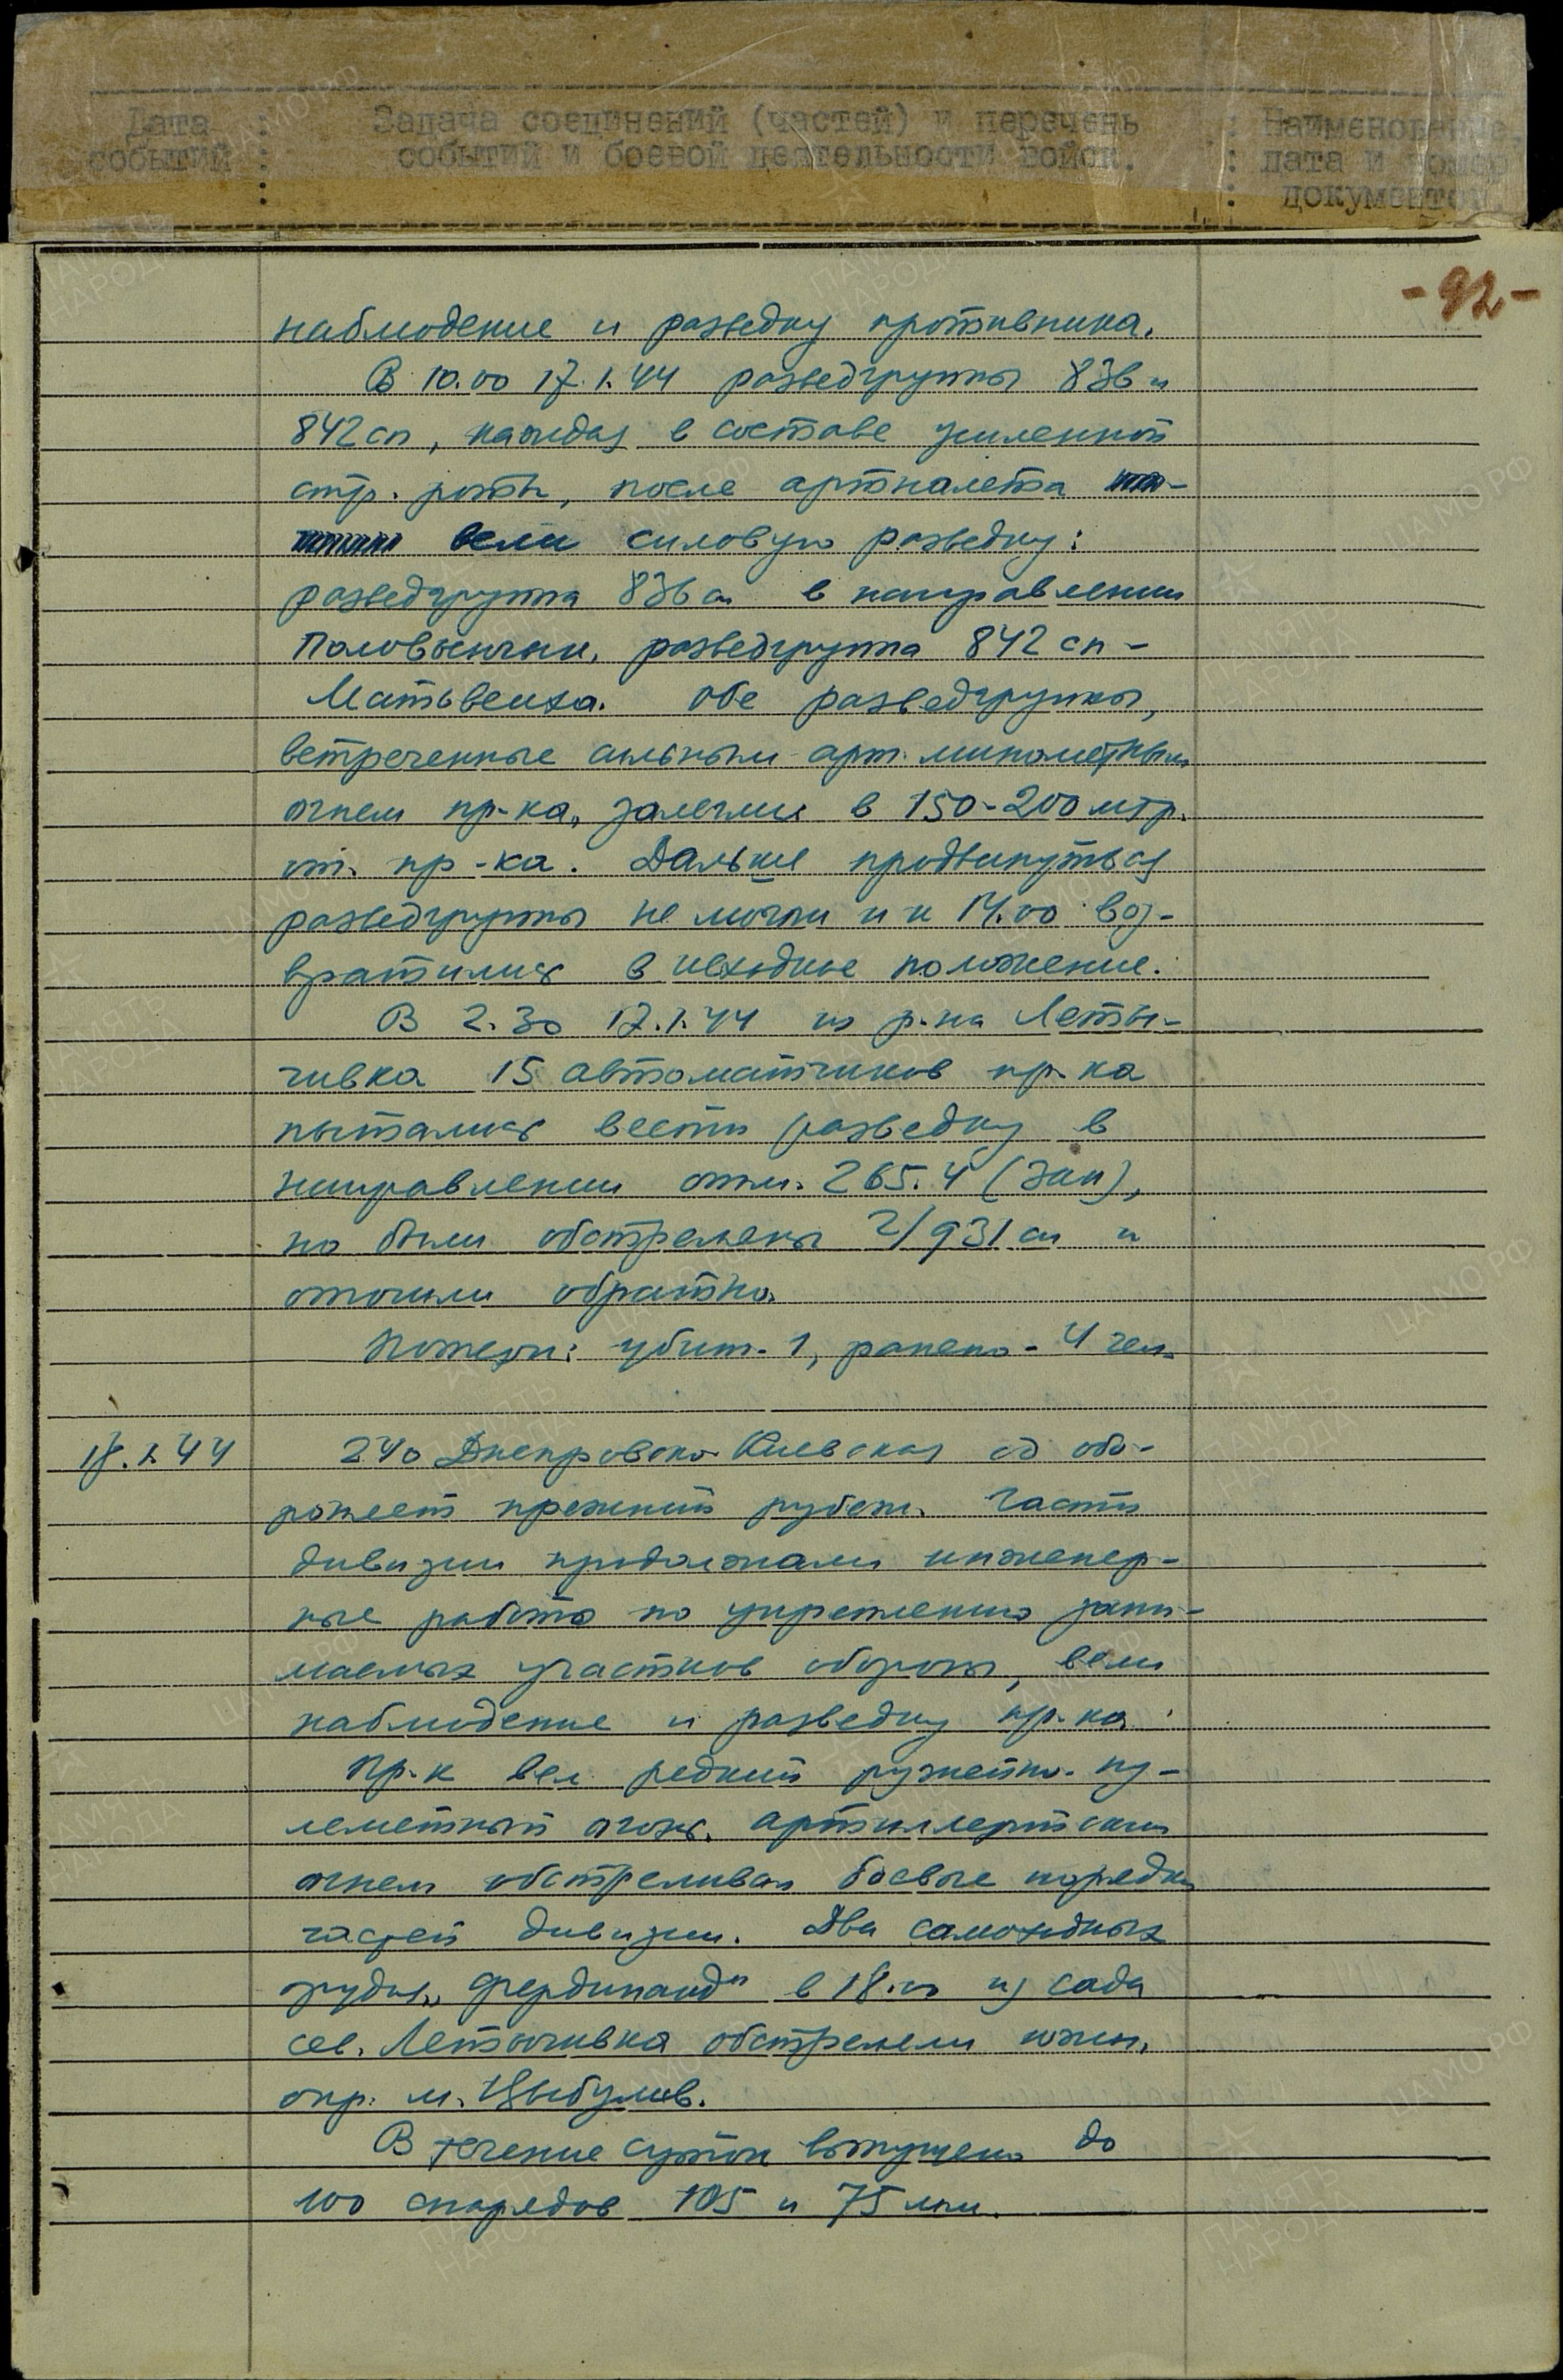 Дата событий : Задача соединений (частей) и перечень событий и боевой деятельности войск. : Наименование, дата и номер документов.
-92-
наблюдение и разведку противника.
В 10.00 17.1.44 разведгруппы 836 и
842 сп, каждая в составе усиленной
стр. роты, после артналета
вели силовую разведку:
разведгруппа 836 сп в направлении
Половынчик, разведгруппа 842 сп –
Матьвеиха. Обе разведгруппы,
встреченные сильным арт. минометным
огнем пр-ка, залегли в 150-200 мтр.
от пр-ка. Дальше продвинуться
разведгруппы не могли и к 14.00 воз-
вратились в исходное положение.
В 2.30 17.1.44 из р-на Леты-
чивка 15 автоматчиков пр-ка
пытались вести разведку в
направлении отм. 265.4 (зап),
но были обстреляны 2/931 сп и
отошли обратно.
Потери: убит- 1, ранено- 4 чел.
18.1.44 240 Днепровско-Киевская сд обо-
роняет прежний рубеж. Части
дивизии продолжали инженер-
ные работы по укреплению зани-
маемых участков обороны, вели
наблюдение и разведку пр-ка.
Пр-к вел редкий ружейно-пу-
леметный огонь. Артиллерийским
огнем обстреливал боевые порядки
частей дивизии. Два самоходных
орудия „Фердинанд" в 18.00 из сада
сев. Летычивка обстреляли южн.
окр. м. Цыбулев.
В течение суток выпущено до
100 снарядов 105 и 75 мм.